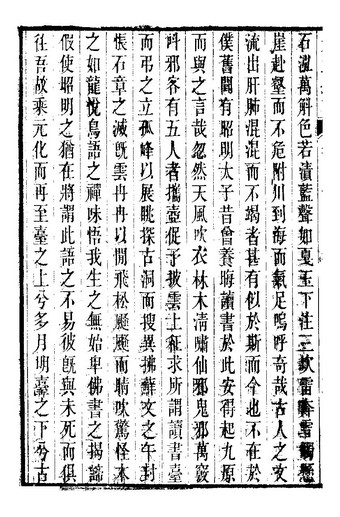 石湍萬斛色若漬藍聲如戛玉下注三㰸雷奔雪翻懸
崖赴壑而不危附川到海而氣足嗚呼奇哉古人之文
流出肝肺混混而不竭者甚有似於斯而今也不在於
僕舊聞有昭明太子昔曾養晦讀書於此安得起九原
而與之言哉忽然天風吹衣林木清嘯仙邪鬼邪萬竅
呺邪客有五人者攜壺促予披雲上征求所謂讀書臺
而弔之立孤峰以展眺探古洞而搜異拂蘚文之午封
悵石章之滅旣雲冉冉以閒飛松颼颼而晴吹驚怪木
之如龍悅鳥語之禪味悟我生之無始卑佛書之揭諦
假使昭明之猶在將謂此語之不易彼旣與未死而俱
往吾故乘元化而再至臺之上兮多月明臺之下兮古